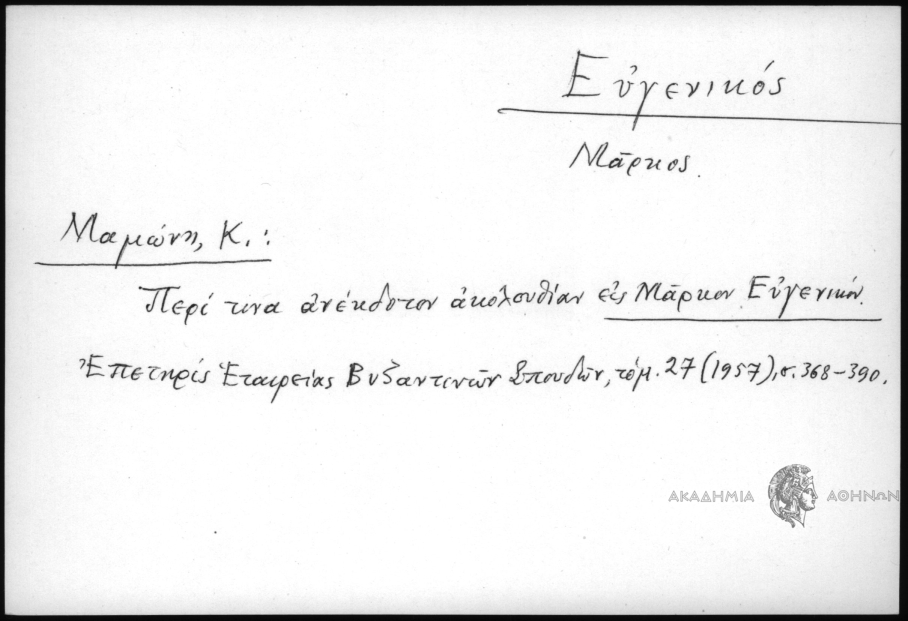 Εὐγενικός
Μᾶρκος.
Μαμώνη, Κ.:
Περί τινα ἀνέκδοτον ἀκολουθίαν εἰς Μᾶρκον Εὐγενικόν.
Ἐπετηρίς Ἑταιρείας Βυζαντινῶν Σπουδῶν, τόμ. 27 (1957), σ. 368-390.
ΑΚΑΔΗΜΙΑ ΑΘΗΝΩΝ